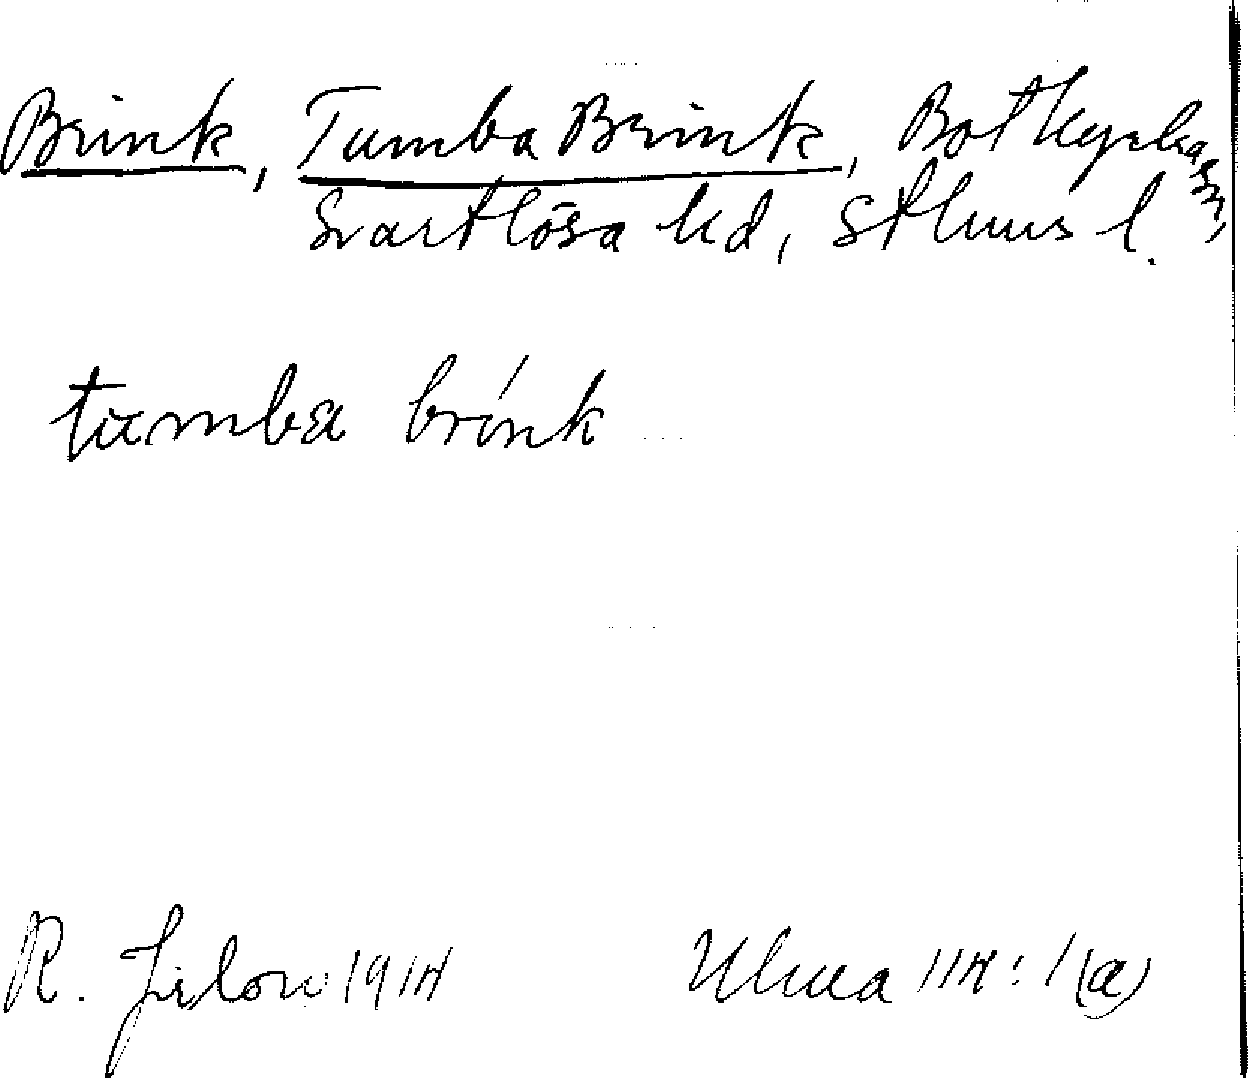 Brink, Tumba Brink, Botkyrka sn,
Svartlösa hd, Sthms l.
tumba brink
R. 1914 Ulma 114:1(a)